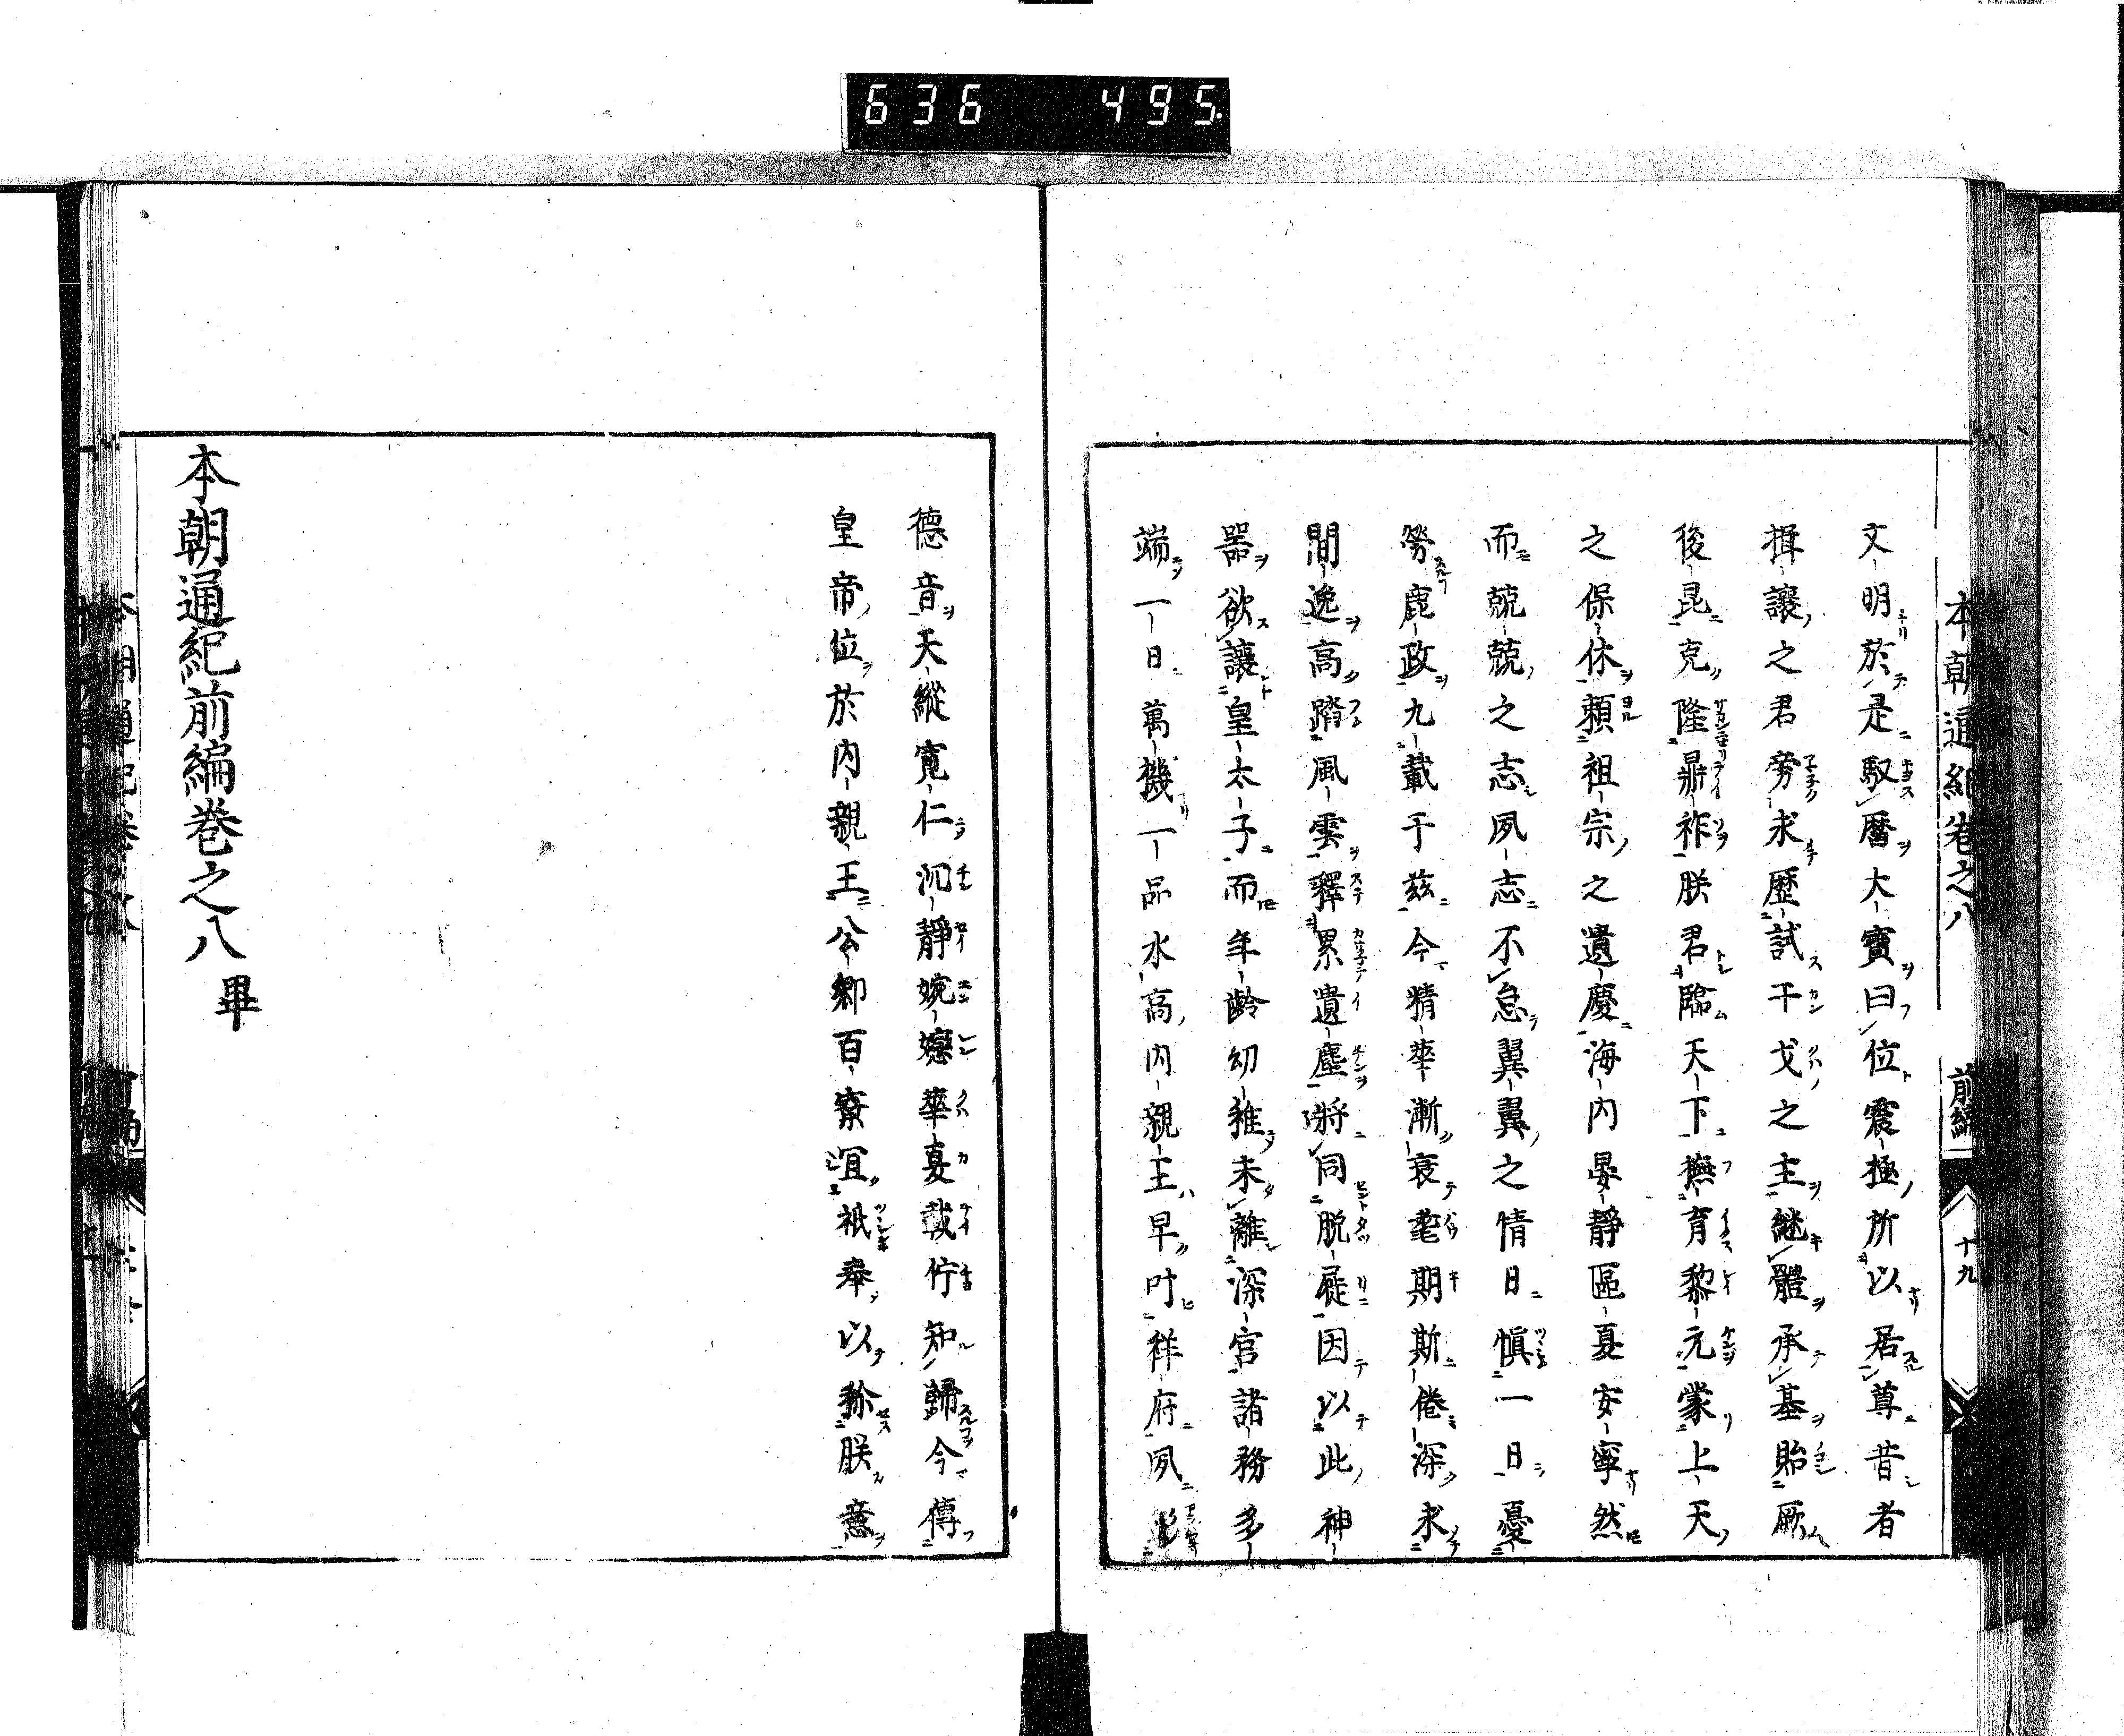 636 495
本朝通紀卷之八 前編 十九
文明於是馭曆大寶曰位震極所以居尊昔者
揖讓之君旁求歷試干戈之主継體承基貽厥
後昆克隆鼎祚朕君臨天下撫育黎元蒙上天
之保休頼祖宗之遺慶海内晏静區夏安寧然
而兢兢之志夙志不怠翼翼之情日慎一日憂
勞庶政九載于茲今精華漸衰耄期斯倦深求
閒逸高踏風雲釋累遺塵將同脱屣因以此神
器欲讓皇太子而年齡幼稚未離深宮諸務多
端一日萬機一品氷高内親王早叶祥府夙
德音天縱寛仁沉静婉㜻華夏載佇知歸今傳
皇帝位於内親王公卿百寮冝祇奉以稱朕意
本朝通紀前編巻之八畢